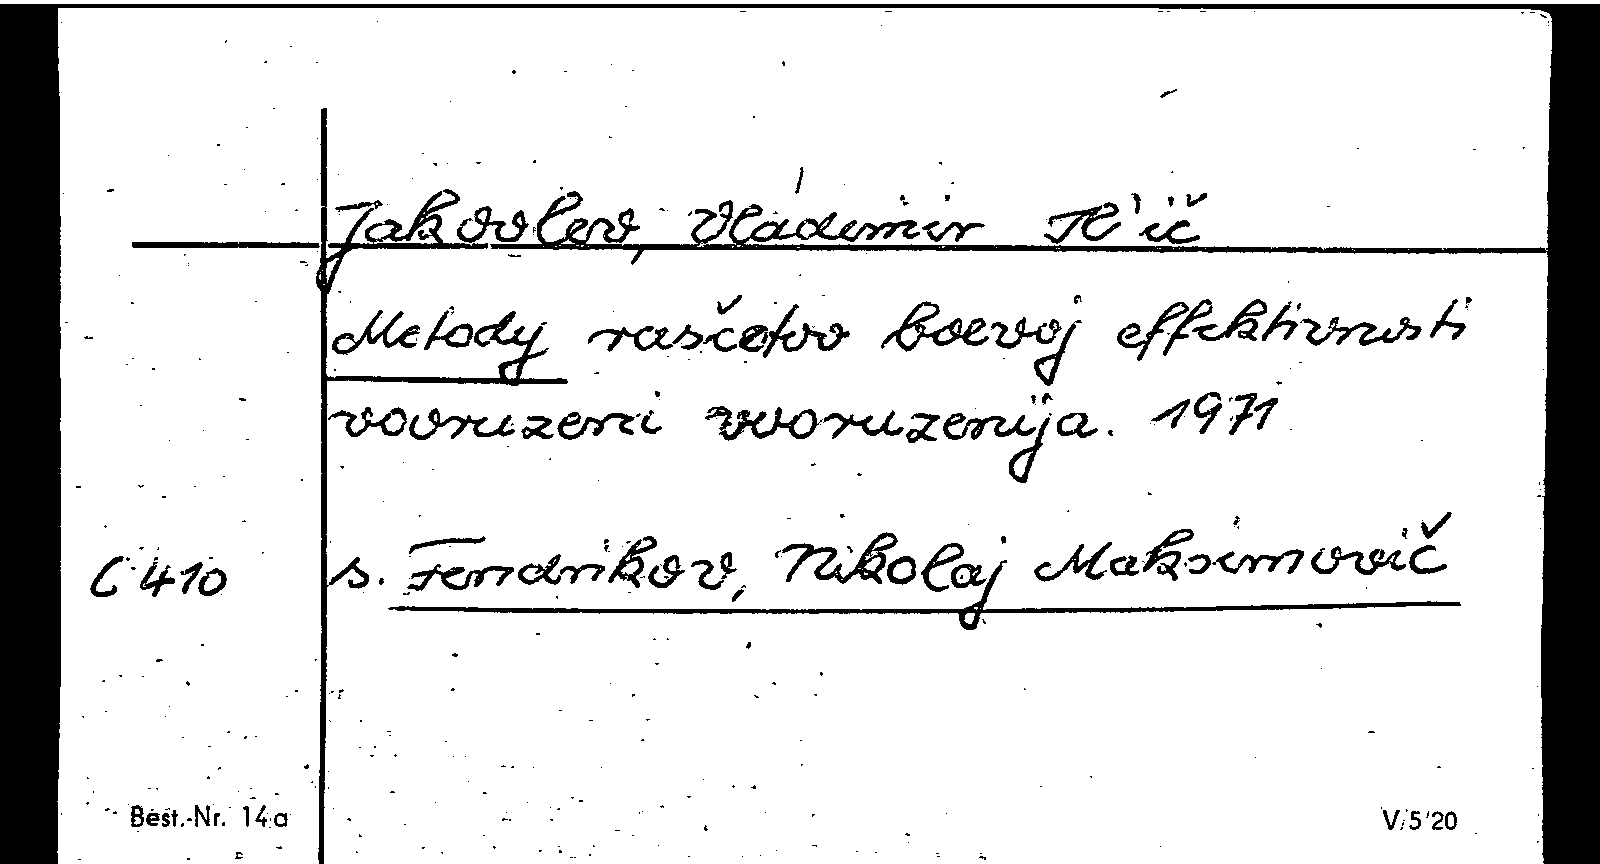 Jakovlev, Vladimir Il'ič
Metody rasčetov boevoj effektivnosti
vooruzeni vooruzenija. 1971
C 410 s. Fendrikov, Nikolaj Maksimovič
Best.-Nr. 14a V/5'20